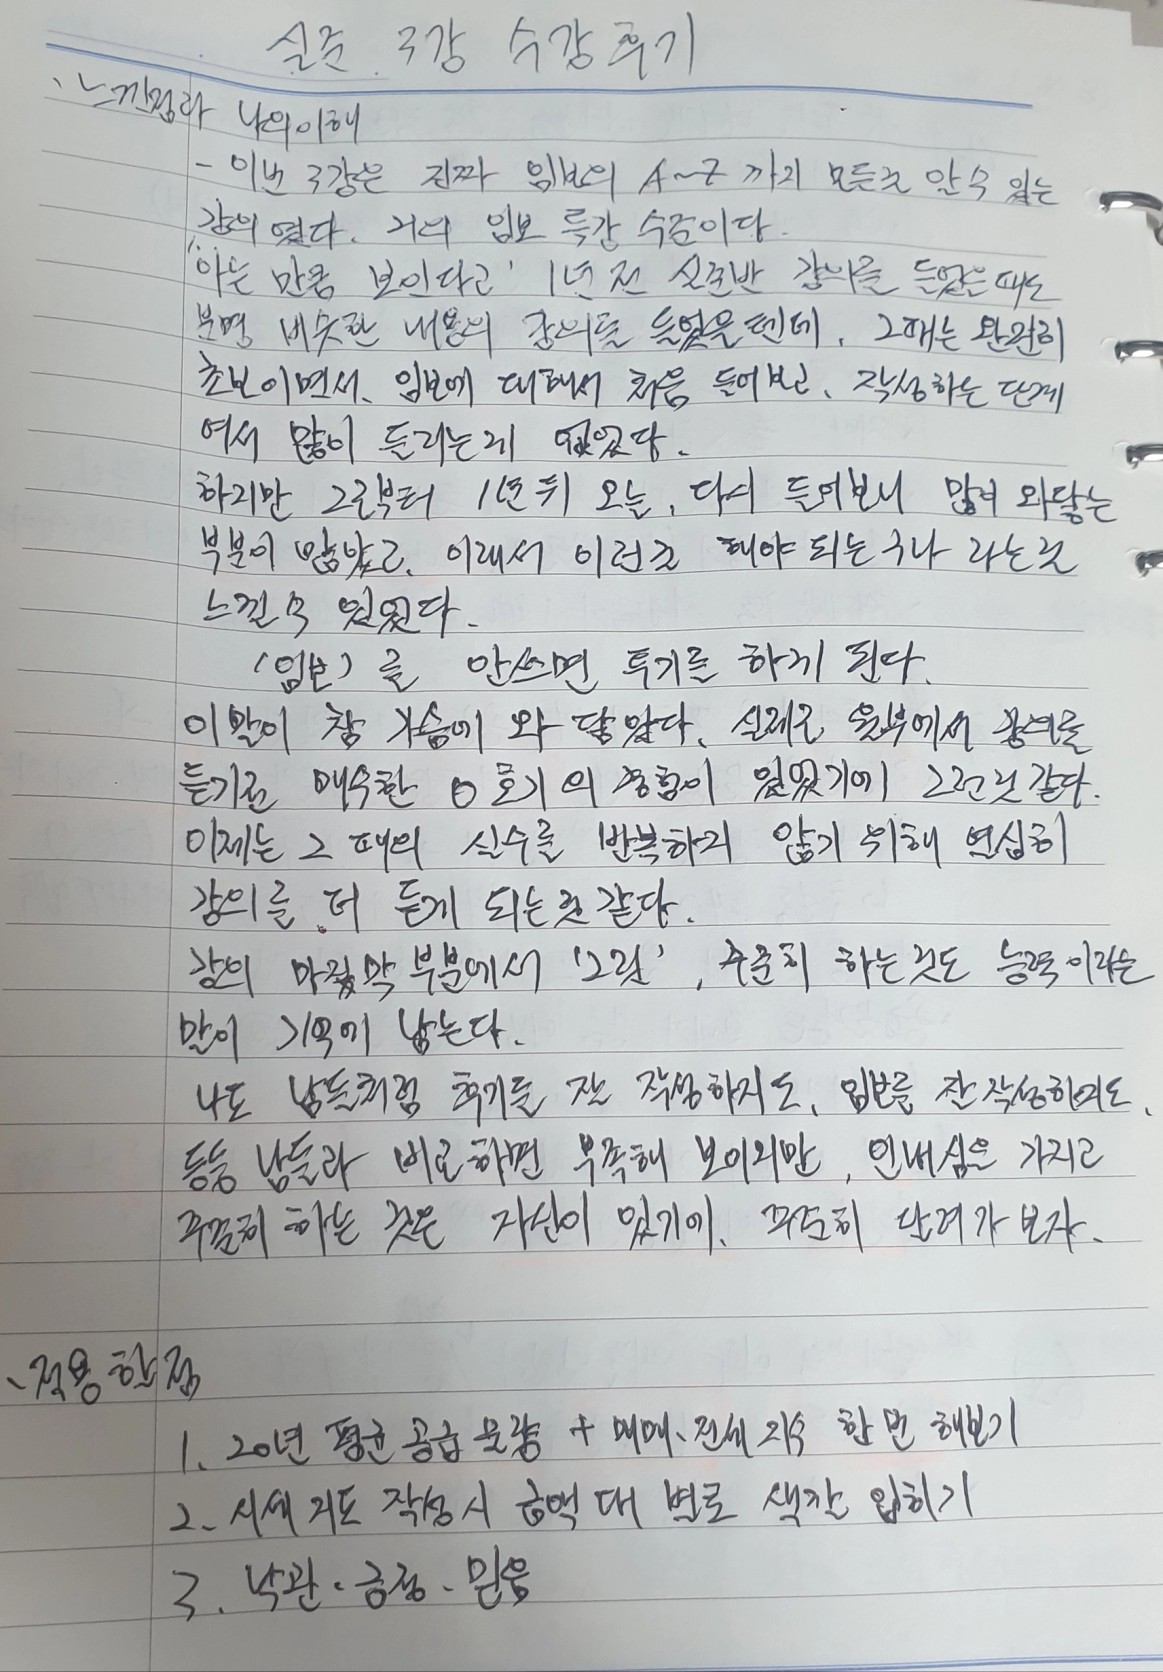 실준 3강 수강후기
· 느낀점과 나의이해
- 이번 3강은 진짜 임보의 A~Z 까지 모든것 알 수 있는
강의 였다. 거의 임보 특강 수준이다.
'아는 만큼 보인다고' 1년 전 실준반 강의를 들었을때도
분명 비슷한 내용의 강의를 들었을텐데, 그때는 완전히
초보이면서, 임보에 대해서 처음 들어보고, 작성하는 단계
여서 많이 들리는게 없었다.
하지만 그로부터 1년 뒤 오늘, 다시 들어보니 많이 와닿는
부분이 많았고, 이래서 이런것 해야 되는구나 라는것
느낄 수 있었다.
(임보) 를 안쓰면 투기를 하게 된다.
이 말이 참 가슴에 와 닿았다. 실제로 월부에서 강의를
듣기전 매수한 0호기의 경험이 있었기에 그런것 같다.
이제는 그 때의 실수를 반복하지 않기 위해 열심히
강의를 더 듣게 되는것 같다.
강의 마지막 부분에서 '그릿', 꾸준히 하는것도 능력이라는
말이 기억에 남는다.
나도 남들처럼 후기를 잘 작성하지도, 임보를 잘 작성하지도,
등등 남들과 비교하면 부족해 보이지만, 인내심을 가지고
꾸준히 하는 것은 자신이 있기에, 꾸준히 달려가 보자.
· 적용할 점
1. 20년 평균 공급 물량 + 매매、전세 지수 한 번 해보기
2. 시세 지도 작성 시 금액 대 별로 색깔 입히기
3. 낙관 · 긍정 · 믿음